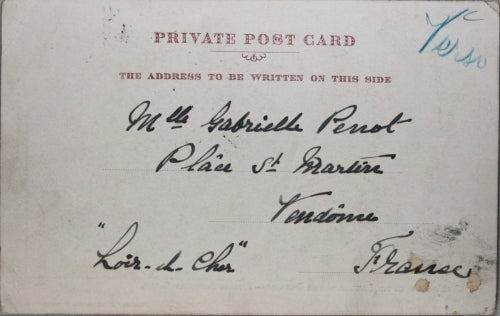 Verso
PRIVATE POST CARD
THE ADDRESS TO BE WRITTEN ON THIS SIDE
Mlle Gabrielle Penot
Plâce St Martin
Vendôme
"Loir-&-Cher"
France